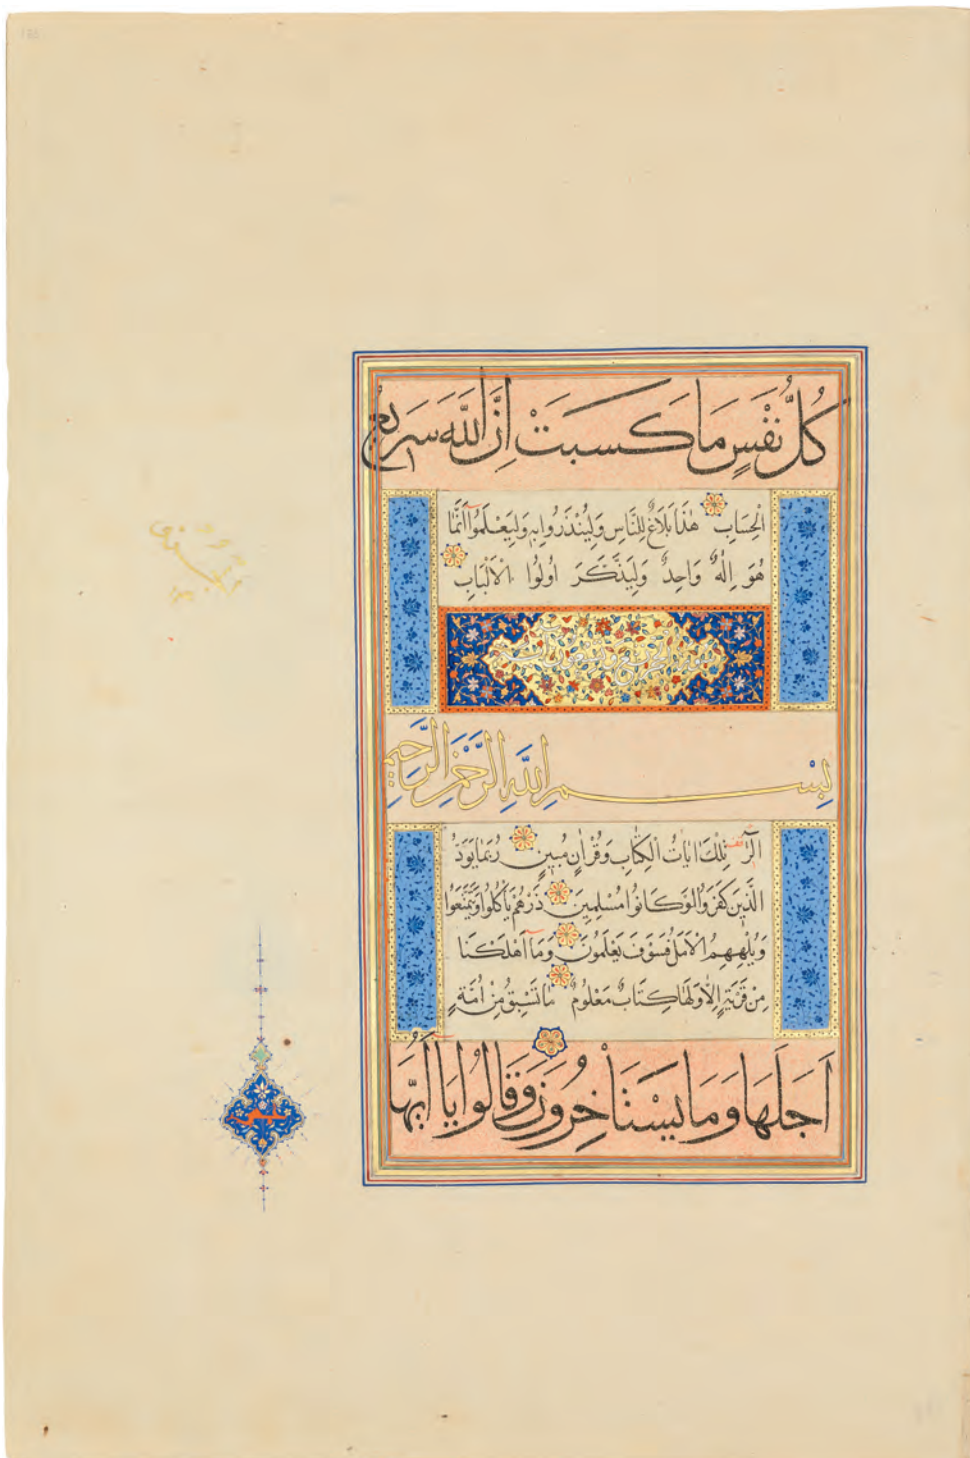 كُلُّ نَفْسٍ مَا كَسَبَتْ اِنَّ اللَّهَ سَرِيعُ
الْحِسَابِ هٰذَا بَلَاغٌ لِلنَّاسِ وَلِيُنْذَرُوا بِهِ وَلِيَعْلَمُوا اَنَّمَا
هُوَ اِلٰهٌ وَاحِدٌ وَلِيَذَّكَّرَ اُولُوا الْاَلْبَابِ
بِسْمِ اللَّهِ الرَّحْمٰنِ الرَّحِيمِ
الٓرٰ تِلْكَ اٰيَاتُ الْكِتَابِ وَقُرْاٰنٍ مُبِينٍ رُبَمَا يَوَدُّ
الَّذِينَ كَفَرُوا لَوْ كَانُوا مُسْلِمِينَ ذَرْهُمْ يَأْكُلُوا وَيَتَمَتَّعُوا
وَيُلْهِهِمُ الْاَمَلُ فَسَوْفَ يَعْلَمُونَ وَمَا اَهْلَكْنَا
مِنْ قَرْيَةٍ اِلَّا وَلَهَا كِتَابٌ مَعْلُومٌ مَا تَسْبِقُ مِنْ اُمَّةٍ
اَجَلَهَا وَمَا يَسْتَأْخِرُونَ وَقَالُوا يَا اَيُّهَا